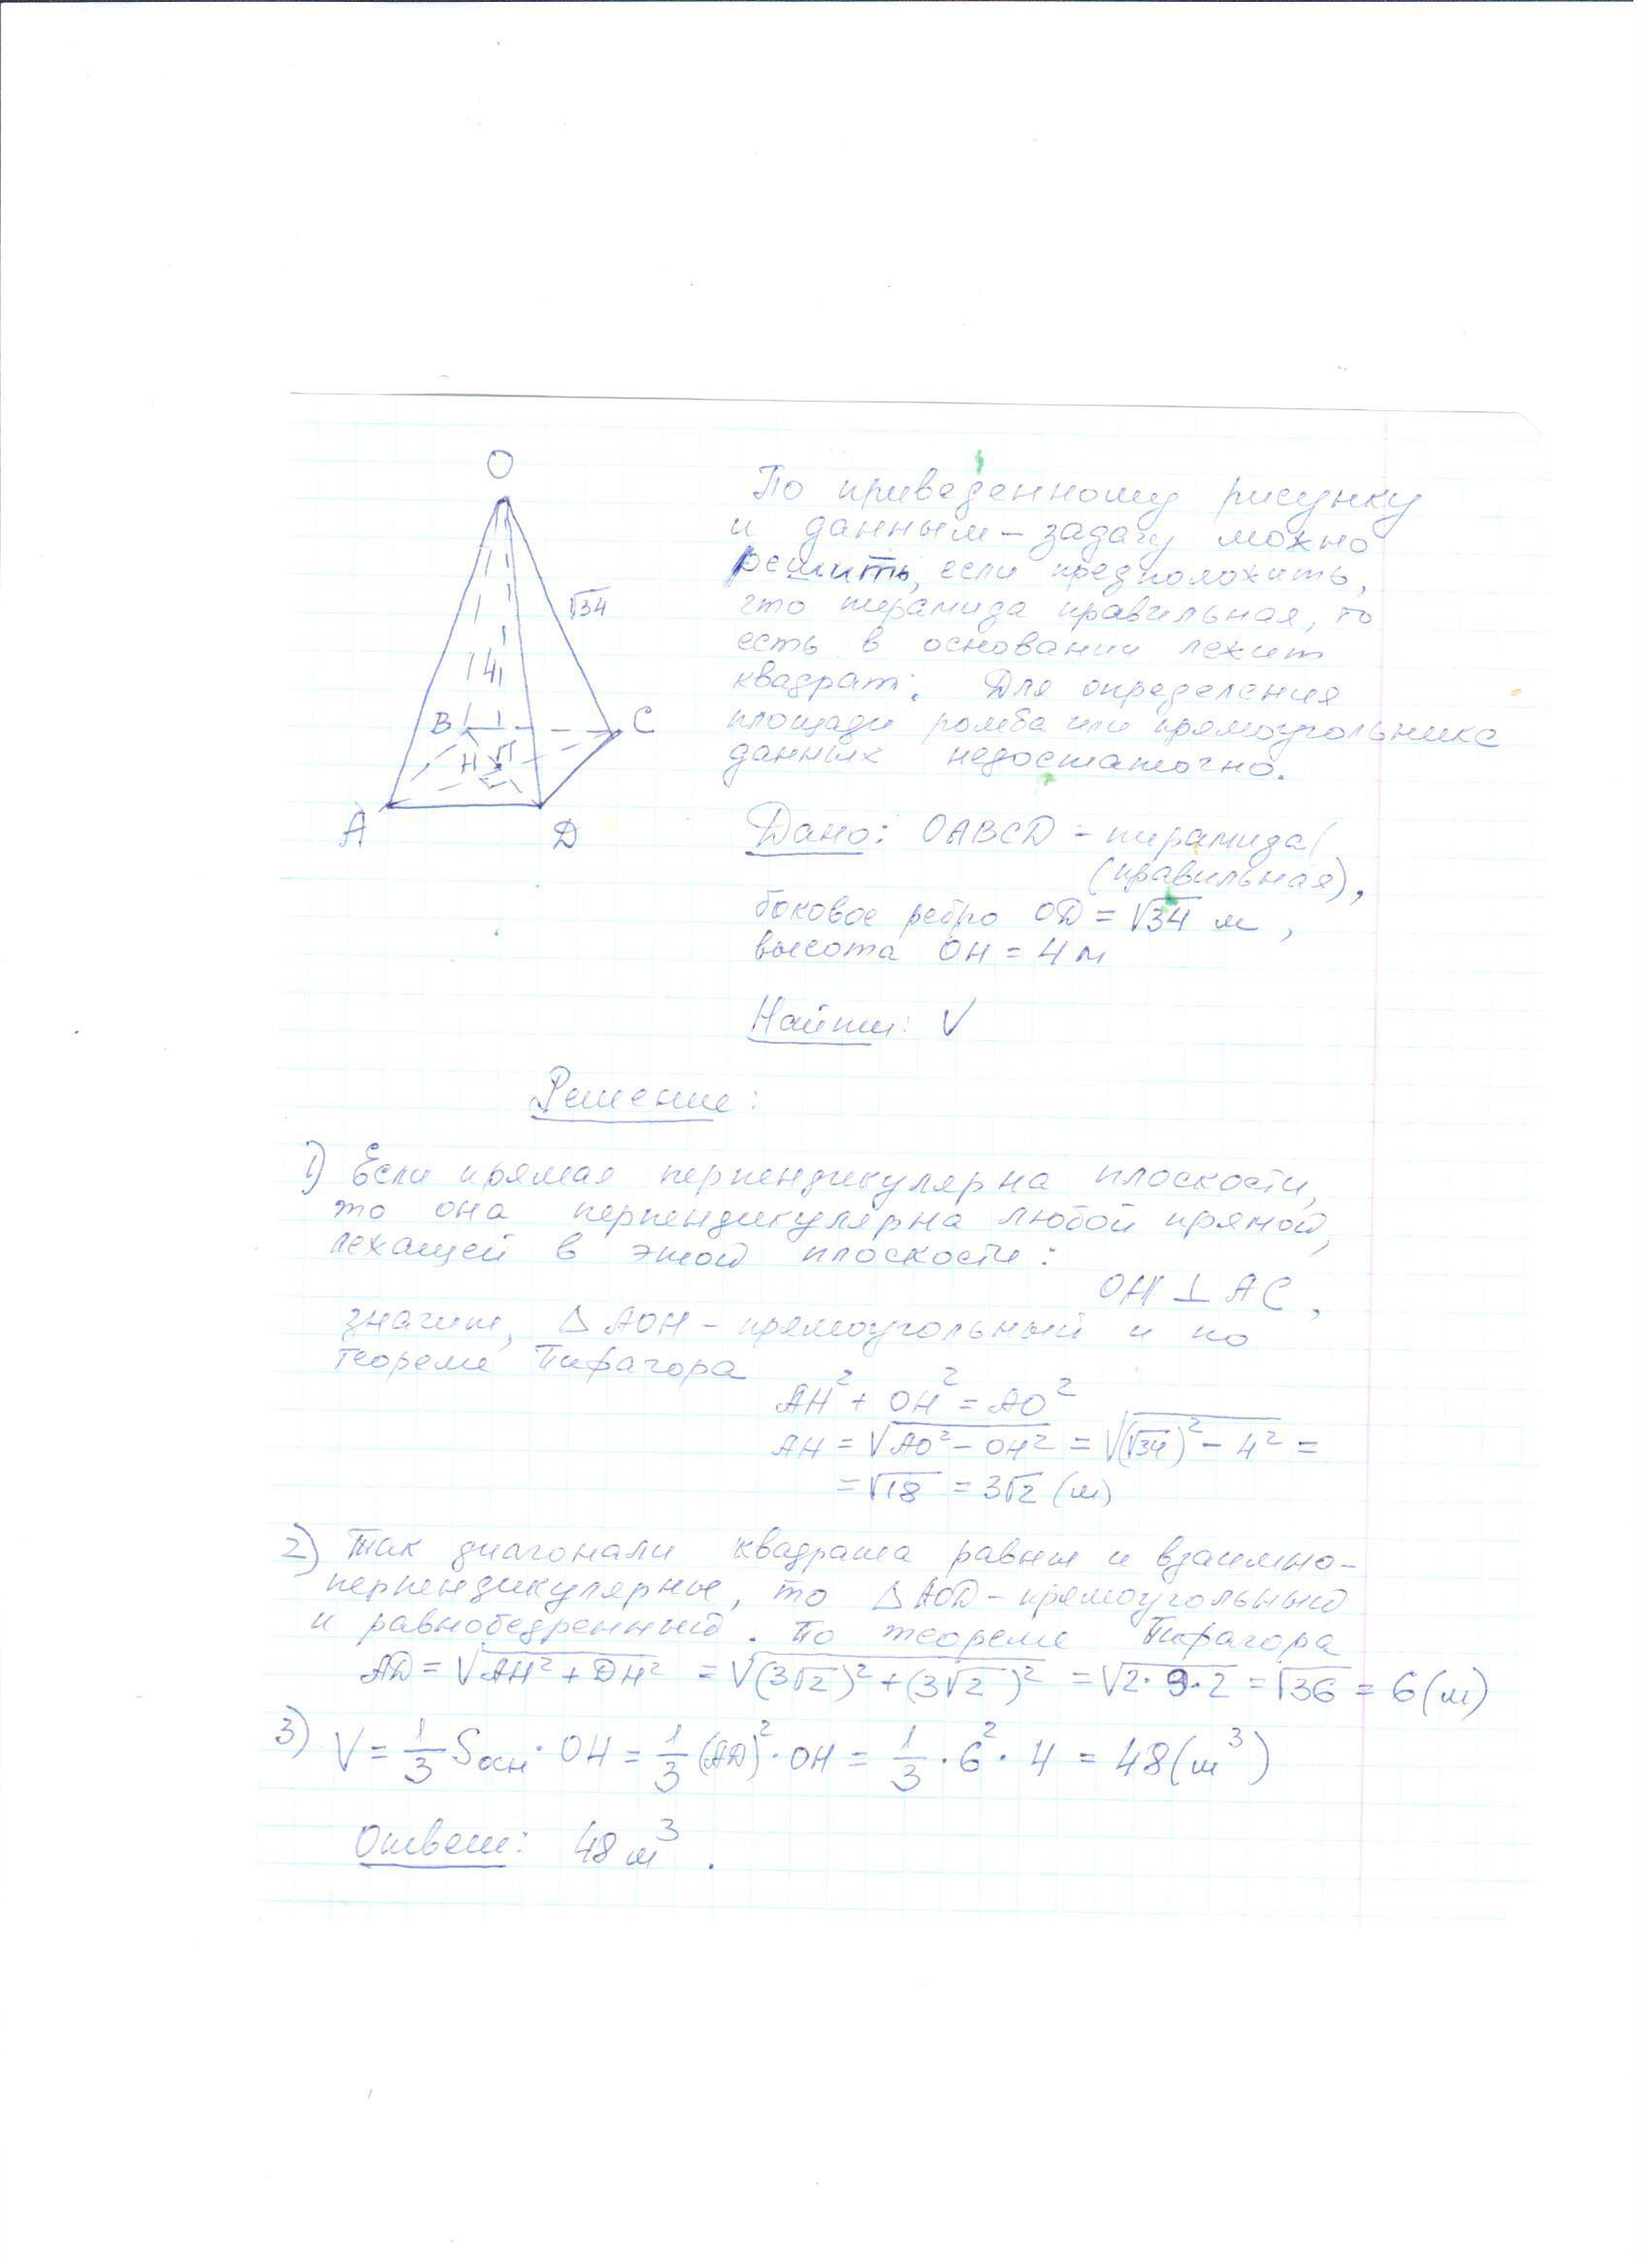 O
√34
4
B
C
H
A
D
По приведенному рисунку
и данным – задачу можно
решить, если предположить,
что пирамида правильная, то
есть в основании лежит
квадрат. Для определения
площади ромба или прямоугольника
данных недостаточно.
Дано: OABCD – пирамида (
(правильная),
боковое ребро OD = √34 м,
высота OH = 4 м
Найти: V
Решение:
1) Если прямая перпендикулярна плоскости,
то она перпендикулярна любой прямой,
лежащей в этой плоскости:
OH ⊥ AC,
значит, △ AOH – прямоугольный и по
теореме Пифагора
AH² + OH² = AO²
AH = √(AO² – OH²) = √((√34)² – 4²) =
= √18 = 3√2 (м)
2) Так диагонали квадрата равны и взаимно-
перпендикулярные, то △ AOD – прямоугольный
и равнобедренный. По теореме Пифагора
AD = √(AH² + DH²) = √((3√2)² + (3√2)²) = √(2·9·2) = √36 = 6 (м)
3) V = 1/3 Sосн · OH = 1/3 (AD)² · OH = 1/3 · 6² · 4 = 48 (м³)
Ответ: 48 м³.